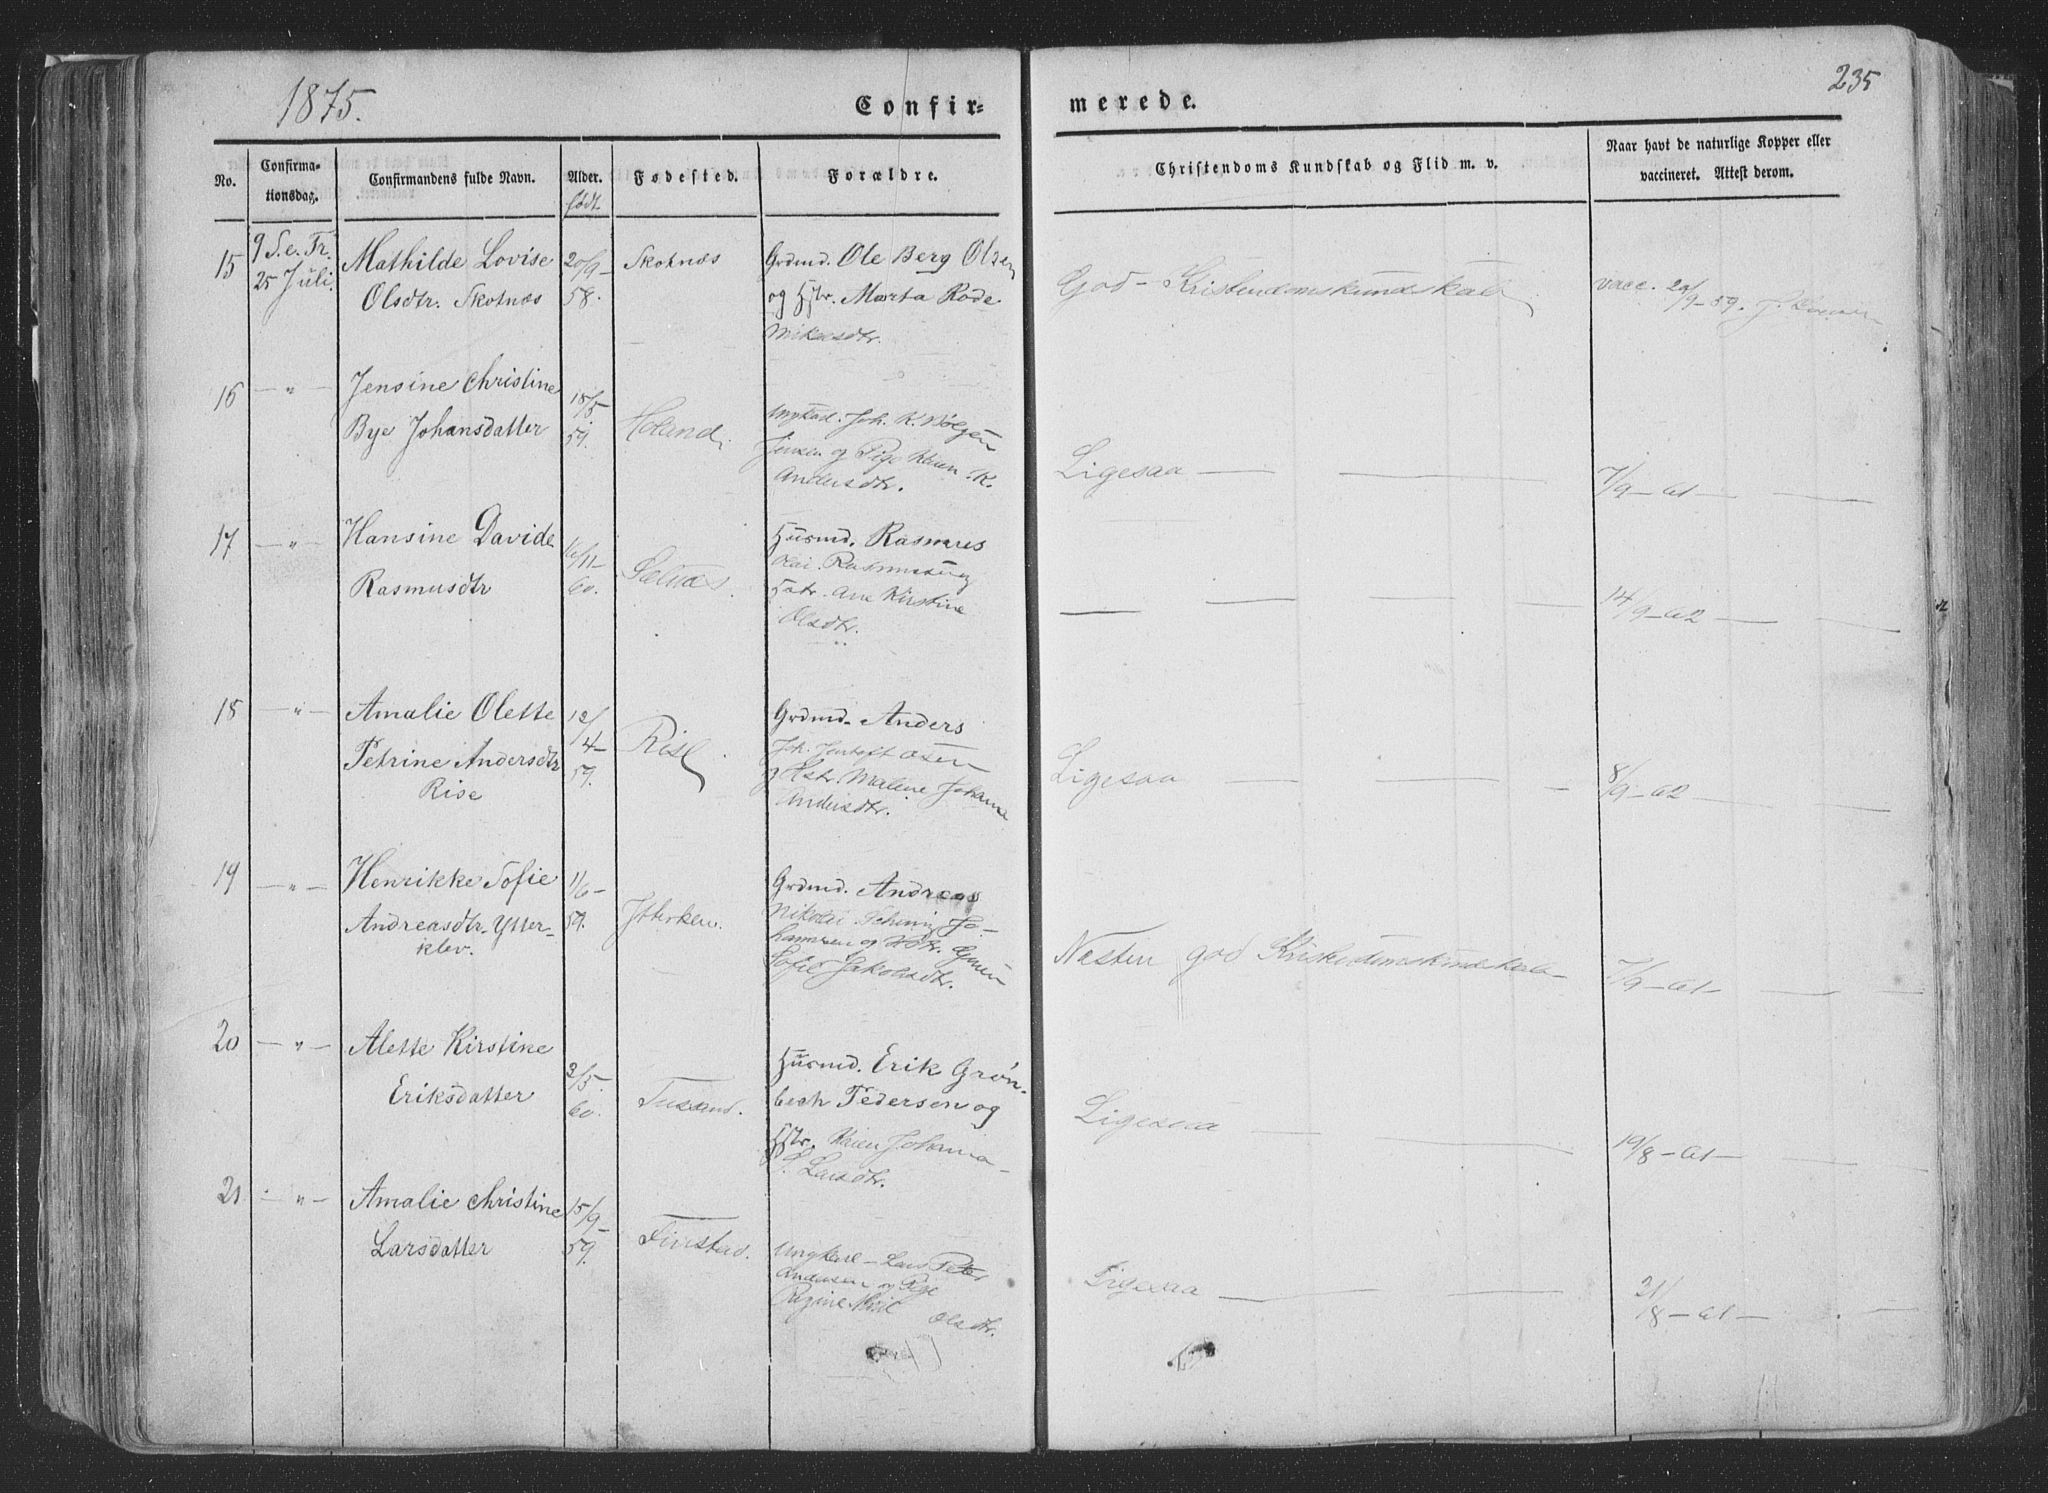 1875.
Confir-
merede.
235
No.
Confirma-
tionsdag.
Confirmandens fulde Navn.
Alder.
født
Fødested.
Forældre.
Christendoms Kundskab og Flid m. v.
Naar havt de naturlige Kopper eller
vaccineret. Attest derom.
15
9 S. e. Tr.
25 Juli.
Mathilde Lovise
Olsdtr. Skotnæs
20/9-
58.
Skotnæs
Grdmd. Ole Berg Olsen
og Hstr. Marta Rode
Nikasdtr.
God Kristendomskundskab
vacc. 20/9-59.
16
— " —
Jensine Christine
Bye Johansdatter
18/5
59.
Holand
Ungkarl. Joh. K. Bølgen
Jensen og Pige Karen K.
Andersdtr.
Ligesaa — —
7/9-61 — —
17
— " —
Hansine Davide
Rasmusdtr
/11-
60.
Husmd. Rasmus
Rasmussen og
Hstr. Ane Kirstine
Olsdtr.
— — — —
14/9-62 — —
18
— " —
Amalie Olette
Petrine Andersdtr
Rise
12/4-
59.
Rise
Grdmd. Anders
Joh. Jentoft Olsen
og Hstr. Malene Johanna
Andersdtr.
Ligesaa — — —
8/9-62 — —
19
— " —
Henrikke Sofie
Andreasdtr. Ytter-
klev.
1/6-
59.
Grdmd. Andreas
Nikolai Jo-
hannesen og Hstr.
Sofie Jakobsdtr.
Næsten god Kristendomskundskab
7/9-61 — —
20
— " —
Alette Kirstine
Eriksdatter
2/5.
60.
Husmd. Erik Grøn-
bech Pedersen og
Hstr. Karen Johanna
Larsdtr.
Ligesaa — — —
19/8-61 — —
21
— " —
Amalie Christine
Larsdatter
15/9-
59.
Finstad.
Ungkarl Lars Peter
Andersen og Pige
Regine Olsdtr.
Ligesaa — — —
21/8-61 — —